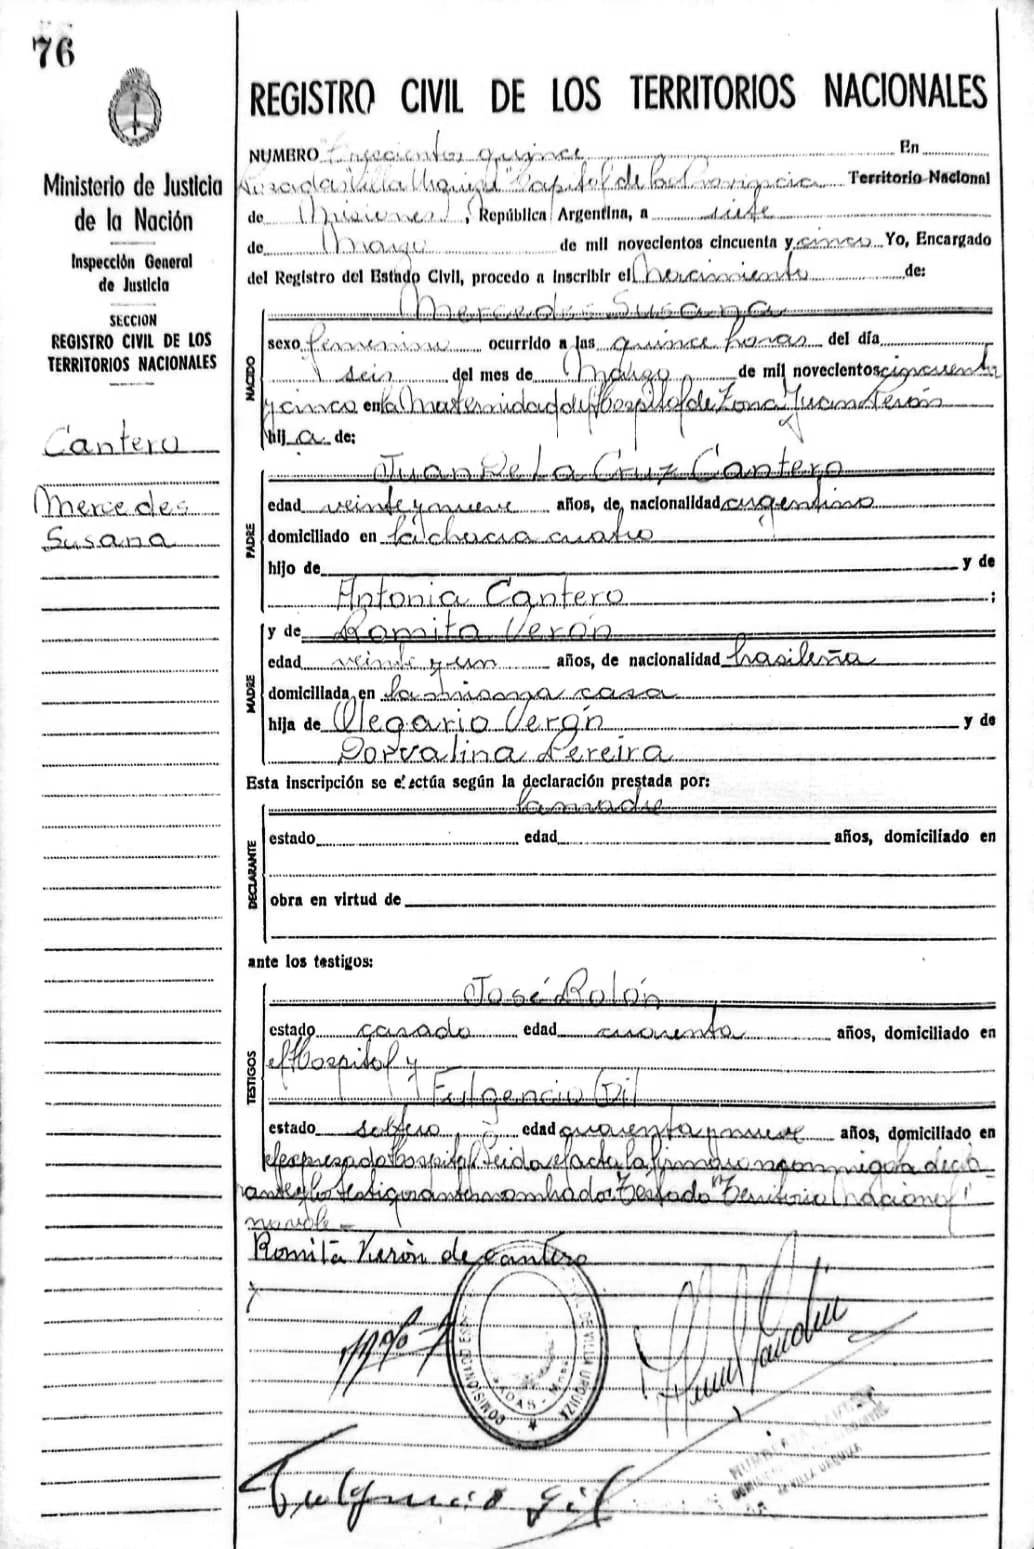 76
Ministerio de Justicia
de la Nación
Inspección General
de Justicia
SECCION
REGISTRO CIVIL DE LOS
TERRITORIOS NACIONALES
Cantero
Mercedes
Susana
REGISTRO CIVIL DE LOS TERRITORIOS NACIONALES
NUMERO Trescientos quince En
Posadas Villa Urquiza Capital de la Provincia Territorio Nacional
de Misiones, República Argentina, a siete
de Marzo de mil novecientos cincuenta y cinco Yo, Encargado
del Registro del Estado Civil, procedo a inscribir el Nacimiento de:
Mercedes Susana
NACIDO
sexo femenino ocurrido a las quince horas del día
seis del mes de Marzo de mil novecientos cincuenta
y cinco en la Maternidad del Hospital de Zona Juan Perón
hija de:
Juan De La Cruz Cantero
PADRE
edad veinte y nueve años, de nacionalidad argentino
domiciliado en la chacra cuatro
hijo de y de
Antonia Cantero ;
y de Romita Verón
MADRE
edad veinte y un años, de nacionalidad brasileña
domiciliada en la misma casa
hija de Olegario Verón y de
Dorvalina Pereira
Esta inscripción se efectúa según la declaración prestada por:
la madre
DECLARANTE
estado edad años, domiciliado en
obra en virtud de
ante los testigos:
José Rolón
TESTIGOS
estado casado edad cuarenta años, domiciliado en
el Hospital y
Fulgencio Gil
estado soltero edad cuarenta y nueve años, domiciliado en
el expresado hospital. Leida el acta la firmaron conmigo la decla
rante y los testigos antes nombrados Testado "Territorio Nacional"
no vale -
Romita Verón de Cantero
DE VILLA URQUIZA
Fulgencio gil